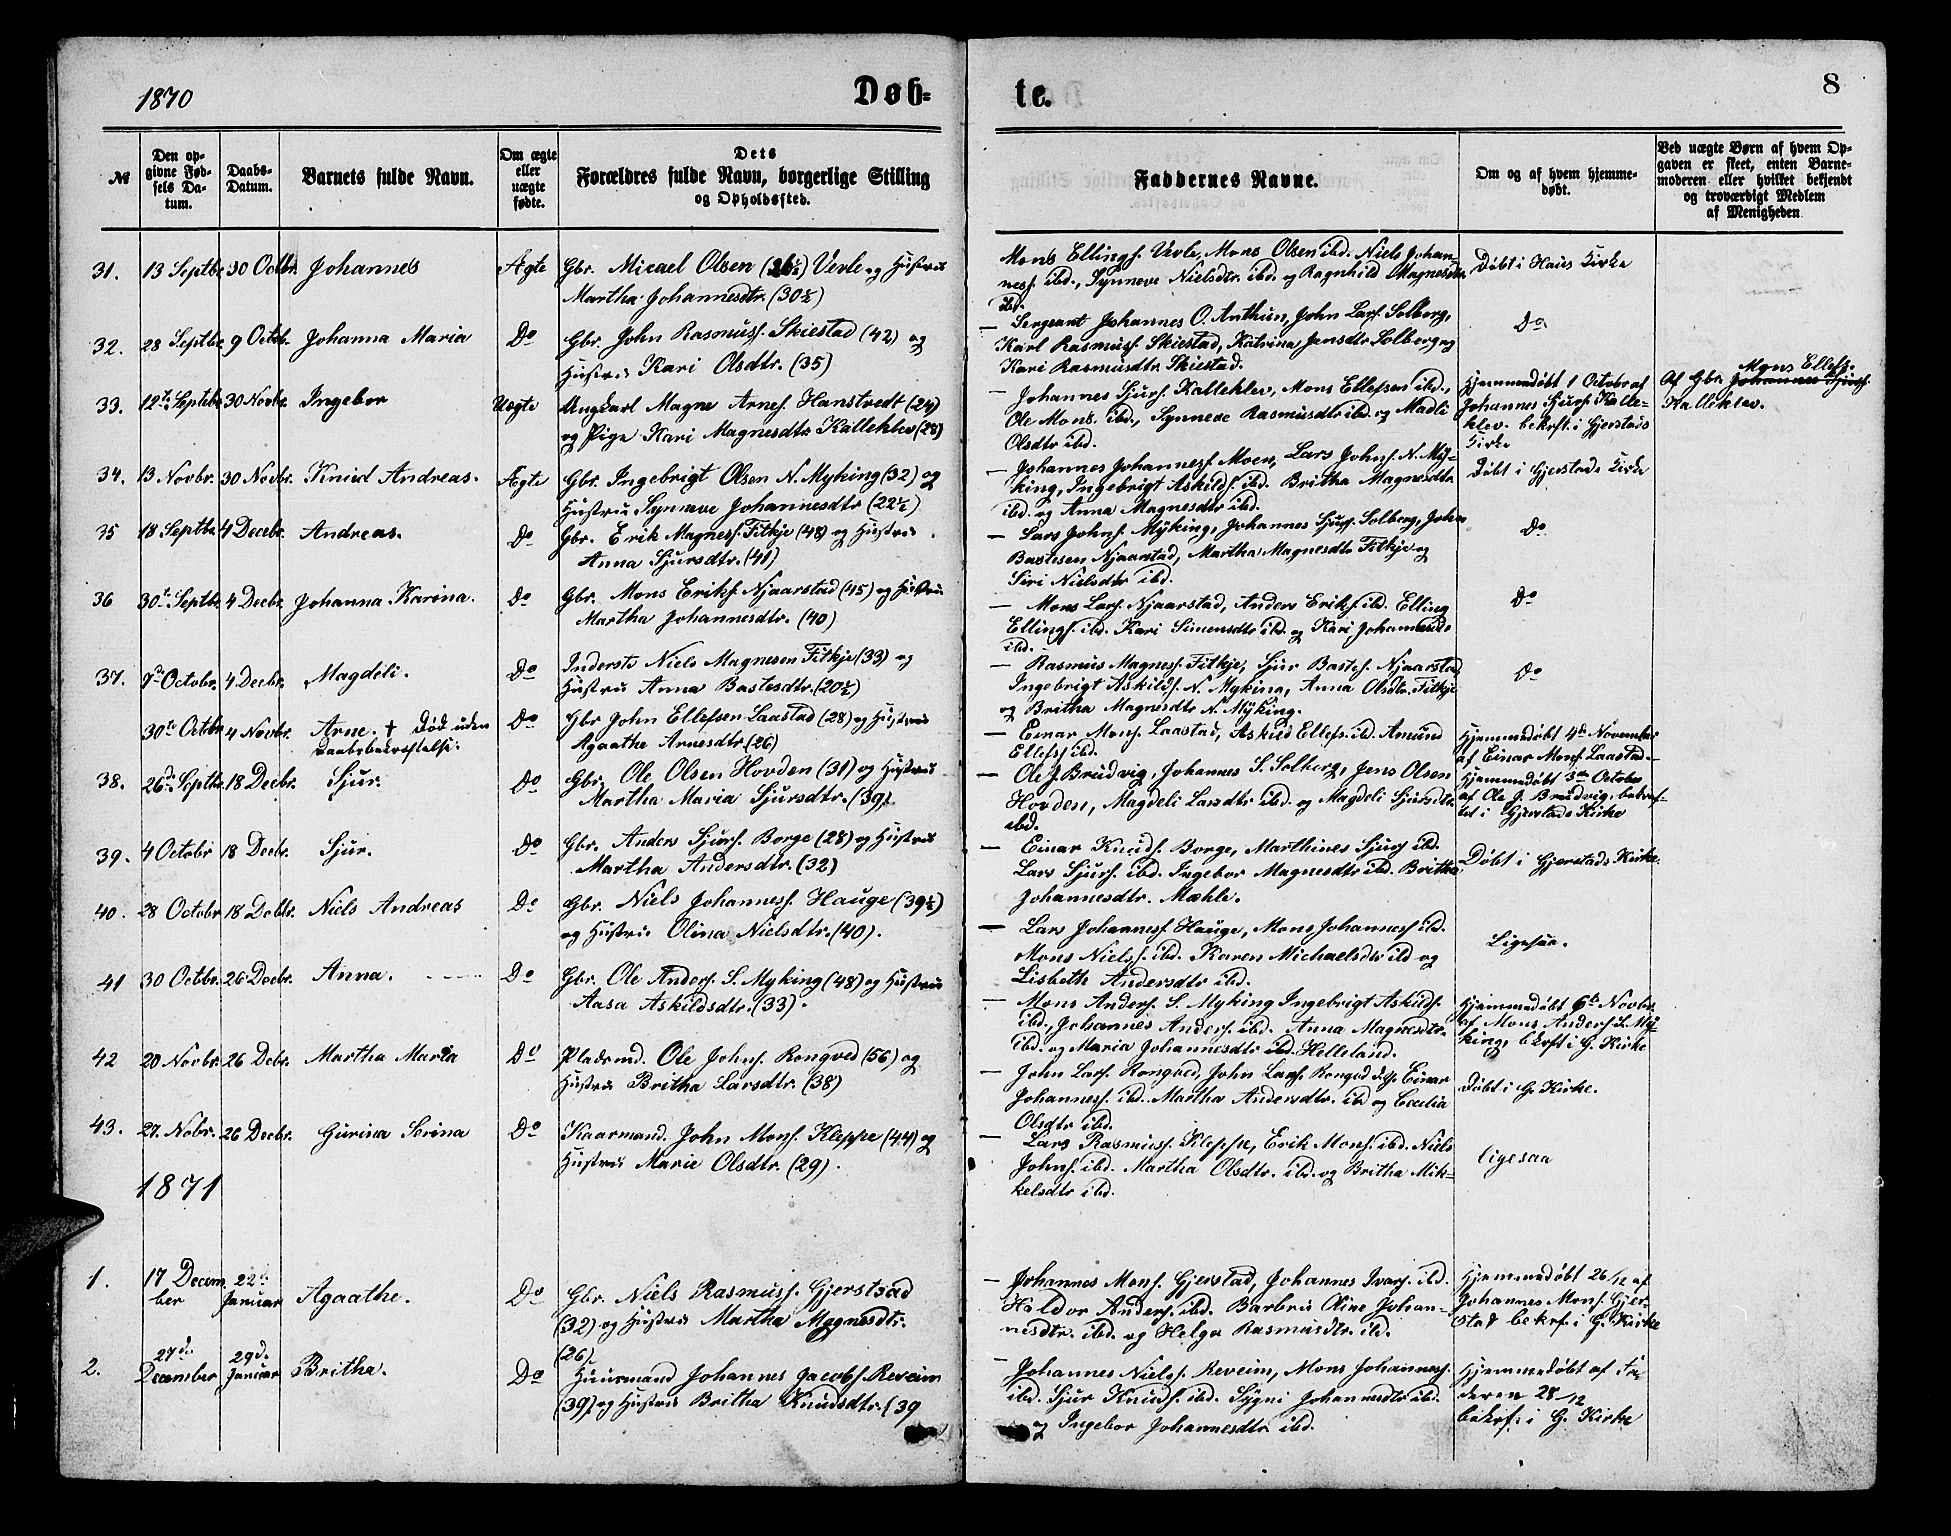 1870
Døb-
te.
8
№
Den opgivne Fødsels Datum.
Daabs-Datum.
Barnets fulde Navn.
Om ægte eller uægte fødte.
Dets Forældres fulde Navn, borgerlige Stilling og Opholdssted.
Faddernes Navne.
Om og af hvem hjemmedøbt.
Ved uægte Børn af hvem Opgaven er skeet, enten Barnemoderen eller hvilket bekjendt og troværdigt Medlem af Menigheden
31. 13 Septbr 30 Octbr. Johannes Ægte Gbr. Micael Olsen (26½) Vevle og Hustru
Martha Johannesdtr. (30½)
Mons Ellings. Vevle, Mons Olsen ibd. Niels Johan-
nes. ibd., Synneve Nielsdtr. ibd. og Ragnhild Magnesdtr
ibd.
Døbt i Haus Kirke
32. 28 Septbr 9 Octbr. Johanna Maria Do Gbr. John Rasmuss. Skiestad (42) og
Hustru Kari Olsdtr. (35)
— Sergeant Johannes O. Arthun, John Lars. Solberg,
Karl Rasmuss. Skiestad, Katrina Jensdtr Solberg og
Kari Rasmusdtr. Skiestad.
Do
33. 12te Septbr 30 Novbr. Ingebor Uægte Ungkarl Magne Arnes. Hanstvedt (24)
og Pige Kari Magnesdtr Kalleklev (28)
— Johannes Sjurs. Kalleklev, Mons Ellefsen ibd.,
Ole Mons. ibd., Synneve Rasmusdtr ibd. og Madli
Olsdtr ibd.
Hjemmedøbt 1 Octobr af
Johannes Sjurs. Kalle-
klev. bekrft. i Gjerstads
Kirke
Mons Ellefs.
Af Gbr. Johannes Sjurs.
Kalleklev.
34. 13 Novbr. 30 Novbr. Knud Andreas. Ægte Gbr. Ingebrigt Olsen N. Myking (32) og
Hustru Synneve Johannesdtr (22½)
— Johannes Johanness. Moen, Lars Johns. N. My-
king, Ingebrigt Askilds. ibd. Britha Magnesdtr
ibd. og Anna Magnesdtr ibd.
Døbt i Gjerstads Kirke
35 18 Septbr 4 Decbr. Andreas. Do Gbr. Erik Magness. Fitkje (48) og Hustru
Anna Sjursdtr. (41)
— Lars Johns. Myking, Johannes Sjurs. Solberg, John
Bastesen Njaarstad, Martha Magnesdtr Fitkje og
Siri Nielsdtr ibd.
Do
36 30te Septbr 4 Decbr Johanna Karina. Do Gbr. Mons Eriks. Njaarstad (45) og Hustru
Martha Johannesdtr. (40)
— Mons Lars. Njaarstad, Anders Eriks. ibd. Elling
Ellings. ibd. Kari Simensdtr ibd. og Kari Johannesdtr
ibd.
Do
37. 7de Octobr. 4 Decbr. Magdeli. Do Inderste Niels Magnesen Fitkje (33) og
Hustru Anna Bastesdtr. (20½)
— Rasmus Magness. Fitkje, Sjur Bastes. Njaarstad
Ingebrigt Askilds. N. Myking, Anna Olsdtr. Fitkje
og Britha Magnesdtr N. Myking.
Do
30te Octbr 4 Novbr. Arne. † Død uden
Daabsbekræftelse. Do Gbr John Ellefsen Laastad (28) og Hustru
Agaathe Arnesdtr. (26)
— Einar Mons. Laastad, Askild Ellefs. ibd. Amund
Ellefs ibd.
Hjemmedøbt 4de November
af Einar Mons. Laastad.
38. 26de Septbr. 18 Decbr. Sjur. Do Gbr. Ole Olsen Hovden (31) og Hustru
Martha Maria Sjursdtr. (39)
— Ole J. Brudvig, Johannes S. Solberg, Jens Olsen
Hovden, Magdeli Larsdtr ibd. og Magdeli Sjursdtr.
ibd.
Hjemmedøbt 3die October
af Ole J. Brudvig, bekræf-
tet i Gjerstads Kirke
39. 4 Octobr 18 Decbr. Sjur. Do Gbr. Anders Sjurs. Borge (28) og Hustru
Martha Andersdtr. (32)
— Einar Knuds. Borge, Marthines Sjurs ibd.
Lars Sjurs. ibd. Ingebor Magnesdtr ibd. Britha
Johannesdtr. Mæhle.
Døbt i Gjerstads Kirke.
40. 28 Octobr 18 Decbr. Niels Andreas Do Gbr. Niels Johanness. Hauge (39½)
og Hustru Olina Nielsdtr. (40).
— Lars Johanness. Hauge, Mons Johanness ibd.
Mons Nielss. ibd. Karen Michaelsdtr ibd og
Lisbeth Andersdtr ibd.
Ligesaa.
41 30 Octbr. 26 Decbr. Anna. Do Gbr. Ole Anders. S. Myking (48) og Hustru
Aasa Askildsdtr. (33).
— Mons Anders. S. Myking Ingebrigt Askilds.
ibd., Johannes Anders. ibd. Anna Magnesdtr.
ibd. og Maria Johannesdtr ibd. Helleland.
Hjemmedøbt 6te Novbr.
af Mons Anders. S. My-
king, bekrft i G. Kirke
42 20 Novbr. 26 Decbr. Martha Maria Do Pladsmd. Ole Johns. Rongved (56) og
Hustru Britha Larsdtr. (38)
— John Lars. Rongved, John Lars. Rongved Einar
Johanness. ibd. Martha Andersdtr. ibd og Cecilia
Olsdtr ibd.
Døbt i G. Kirke.
43. 27. Nobr. 26 Decbr. Gurina Serina Do Kaarmand. John Mons. Kleppe (44) og
Hustru Marie Olsdtr. (29).
— Lars Rasmuss. Kleppe, Erik Mons. ibd. Niels
Johns. ibd. Martha Olsdtr. ibd. og Britha Mik-
kelsdtr ibd.
ligesaa
1871
1. 17 Decem
ber 22de
Januar Agaathe. Do Gbr. Niels Rasmuss. Gjerstad
(32) og Hustru Martha Magnesdtr.
(26)
— Johannes Mons. Gjerstad, Johannes Ivars. ibd.
Haldor Anders. ibd. Barbru Oline Johan-
nesdtr. ibd. og Helga Rasmusdtr. ibd.
Hjemmedøbt 26/12 af
Johannes Mons. Gjer-
stad bekrf. i G. Kirke
2. 27d.
December 29d.
Januar Britha. Do Huusmand Johannes Jacobs. Reveim
(39) og Hustru Britha Knudsdtr. (39
— Johannes Niels. Reveim, Mons Johanness.
ibd. Sjur Knuds. ibd. Sygni Johannesdtr ibd.
og Ingebor Johannesdtr ibd.
Hjemmedøbt af Fa-
deren 28/12
bekrf. i G. Kirke